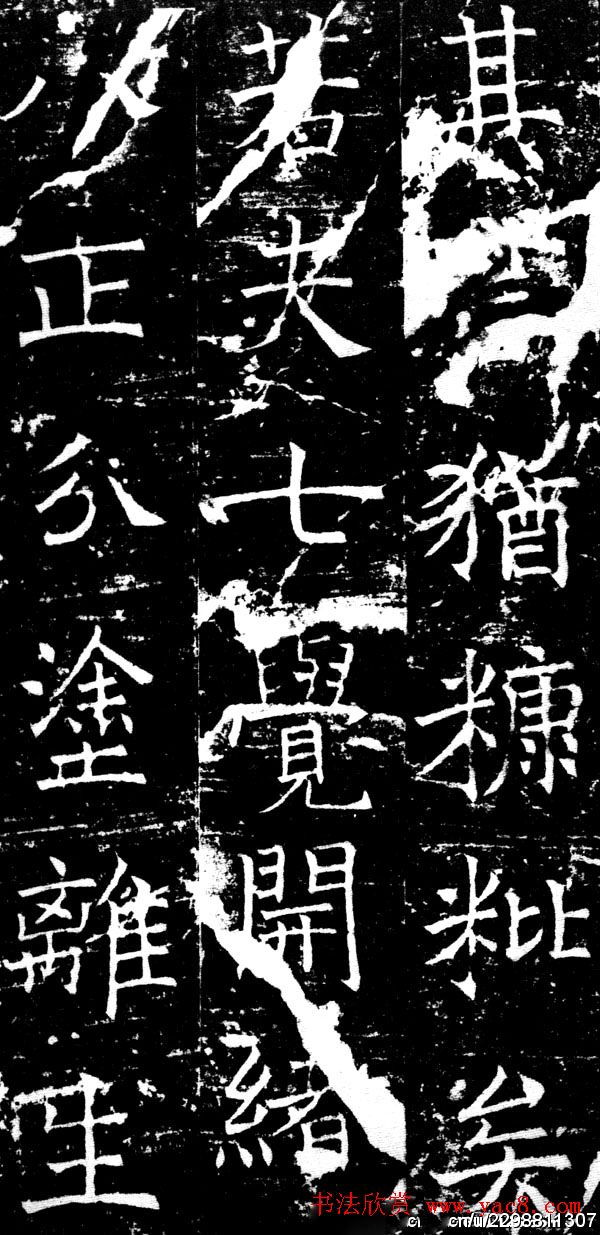 其猶糠粃矣
若夫七覺開緒
八正分塗離生
书法欣赏 www.yac8.com
cn/u/2298811307